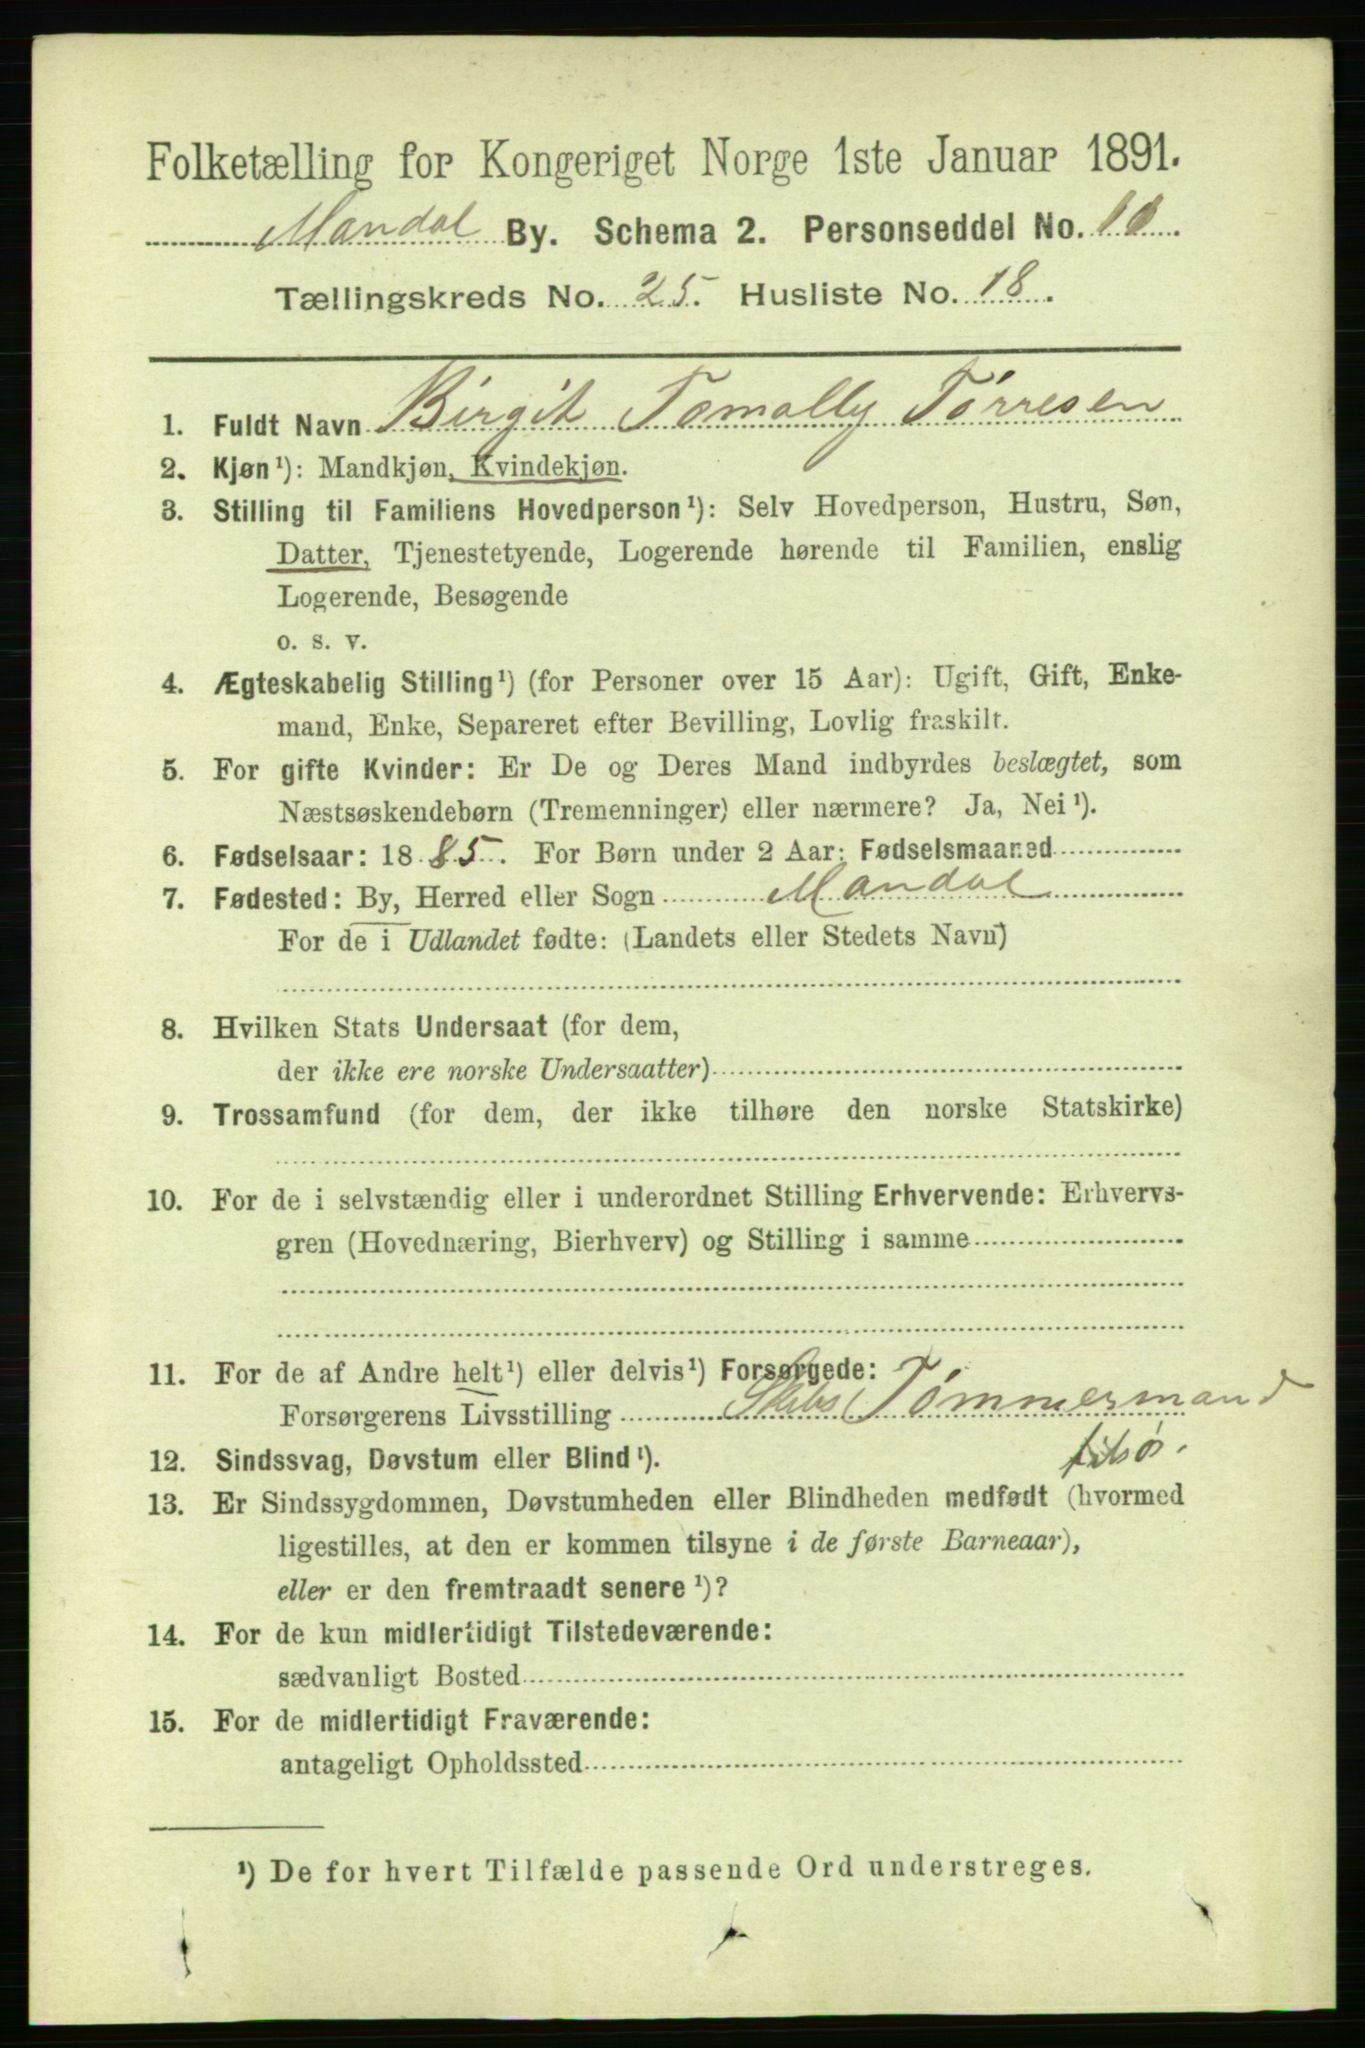 Folketælling for Kongeriget Norge 1ste Januar 1891.
Mandal By. Schema 2. Personseddel No. 10.
Tællingskreds No. 25. Husliste No. 18.
1. Fuldt Navn Birgit Tomally Tørresen
2. Kjøn¹): Mandkjøn, Kvindekjøn.
3. Stilling til Familiens Hovedperson¹): Selv Hovedperson, Hustru, Søn,
Datter, Tjenestetyende, Logerende hørende til Familien, enslig
Logerende, Besøgende
o. s. v.
4. Ægteskabelig Stilling¹) (for Personer over 15 Aar): Ugift, Gift, Enke-
mand, Enke, Separeret efter Bevilling, Lovlig fraskilt.
5. For gifte Kvinder: Er De og Deres Mand indbyrdes beslægtet, som
Næstsøskendebørn (Tremenninger) eller nærmere? Ja, Nei¹).
6. Fødselsaar: 1885. For Børn under 2 Aar: Fødselsmaaned
7. Fødested: By, Herred eller Sogn Mandal
For de i Udlandet fødte: (Landets eller Stedets Navn)
8. Hvilken Stats Undersaat (for dem,
der ikke ere norske Undersaatter)
9. Trossamfund (for dem, der ikke tilhøre den norske Statskirke)
10. For de i selvstændig eller i underordnet Stilling Erhvervende: Erhvervs-
gren (Hovednæring, Bierhverv) og Stilling i samme
11. For de af Andre helt¹) eller delvis¹) Forsørgede:
Forsørgerens Livsstilling Skibs Tømmermand
12. Sindssvag, Døvstum eller Blind¹). tilsøs.
13. Er Sindssygdommen, Døvstumheden eller Blindheden medfødt (hvormed
ligestilles, at den er kommen tilsyne i de første Barneaar),
eller er den fremtraadt senere¹)?
14. For de kun midlertidigt Tilstedeværende:
sædvanligt Bosted
15. For de midlertidigt Fraværende:
antageligt Opholdssted
¹) De for hvert Tilfælde passende Ord understreges.